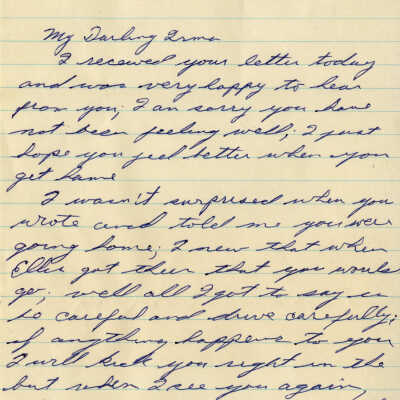 My Darling Irma
I received your letter today
and was very happy to hear
from you; I am sorry you have
not been feeling well; I just
hope you feel better when you
get home
I wasn't surprised when you
wrote and told me you were
going home; I new that when
Ellis got there that you would
go; well all I got to say is
so careful and drive carefully;
if anything happens to you
I will kick you right in the
but when I see you again,